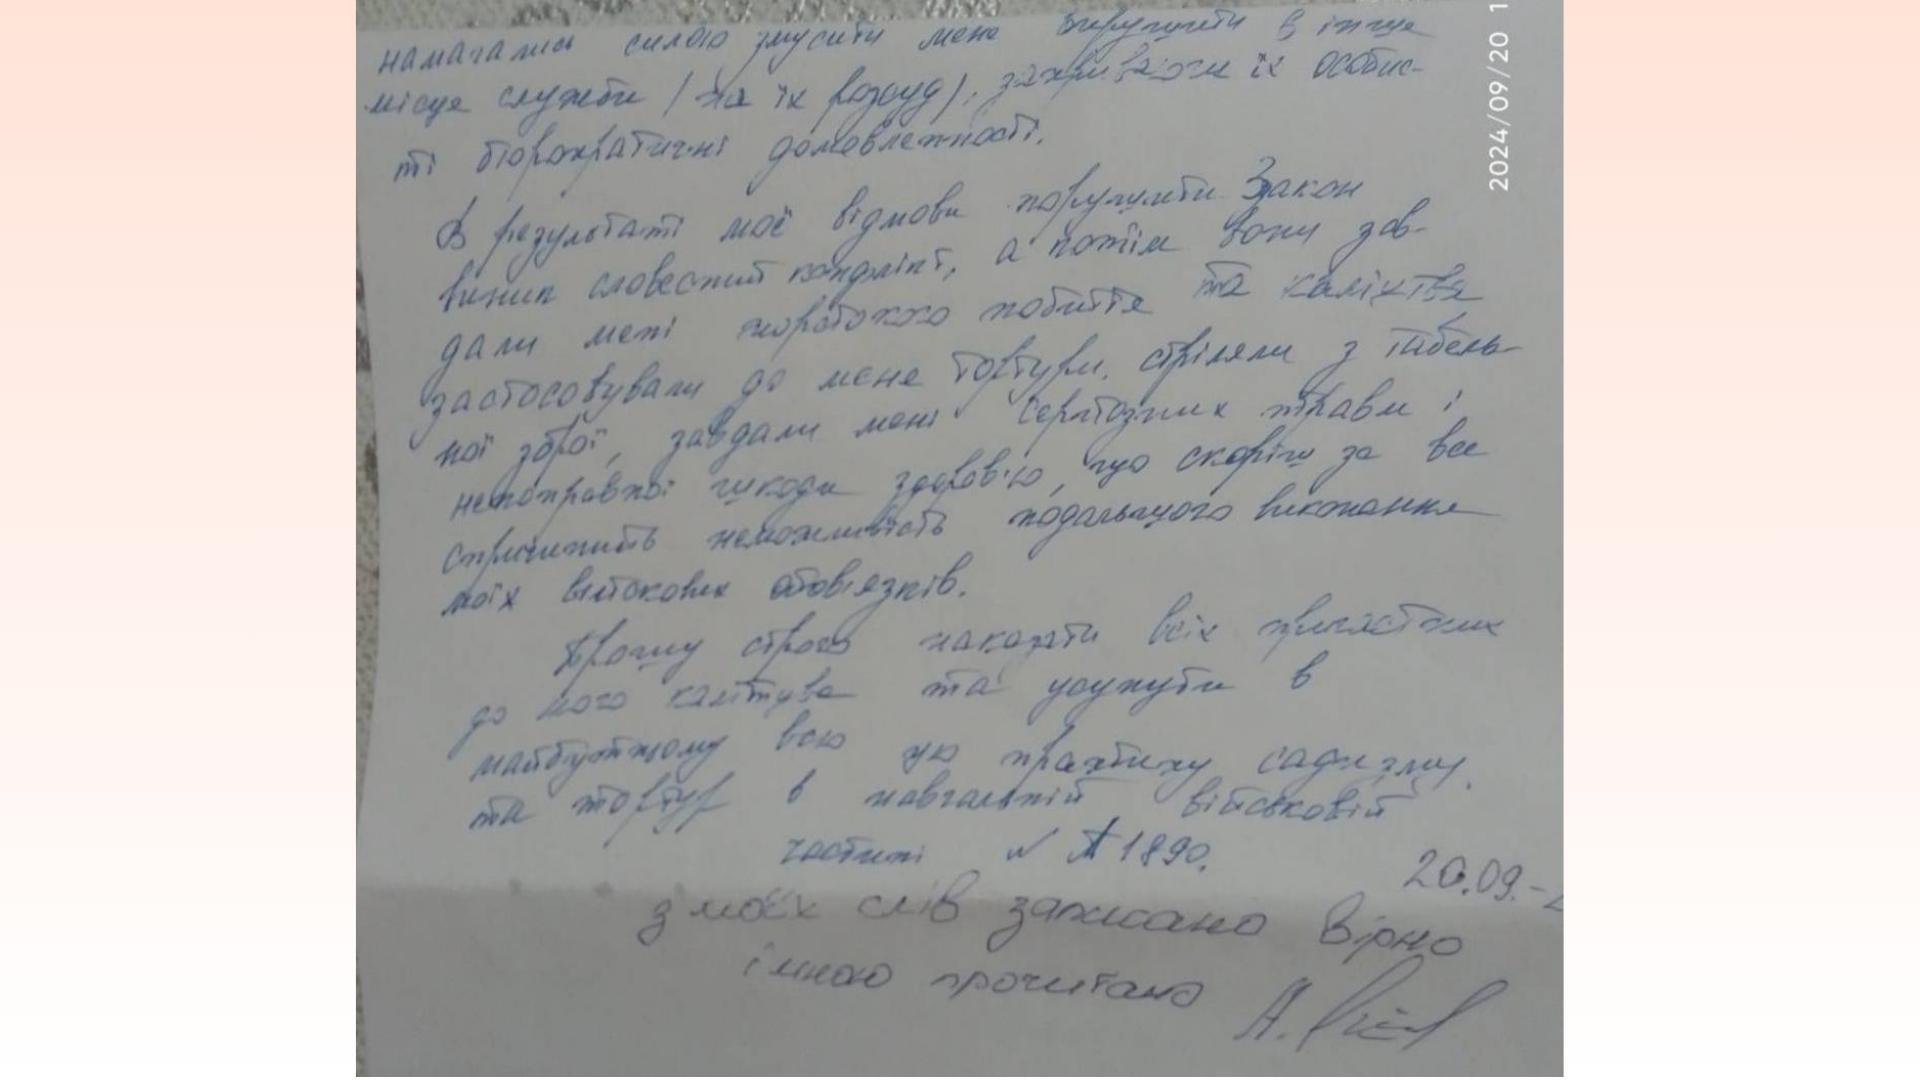 намагались силою змусити мене вирушити в інще
місце служби (на їх розсуд), закриваючи їх особис-
ті бюрократичні домовленності.
В результаті моєї відмови порушити Закон
виник словесний конфлікт, а потім вони зав-
дали мені жорстокого побиття та каліцтва
застосовували до мене тортури, стріляли з табель-
ної зброї, завдали мені серйозних травм і
непоправної шкоди здоров'ю, що скоріш за все
спричинить неможливість подальшого виконання
моїх військових обов'язків.
Прошу строго наказати всіх причастних
до мого каліцтва та усунути в
майбутньому всю цю практику садизму
та тортур в навчальній військовій
частині № А1890.
20.09.-
з моїх слів записано вірно
і мною прочитано
2024/09/20 1